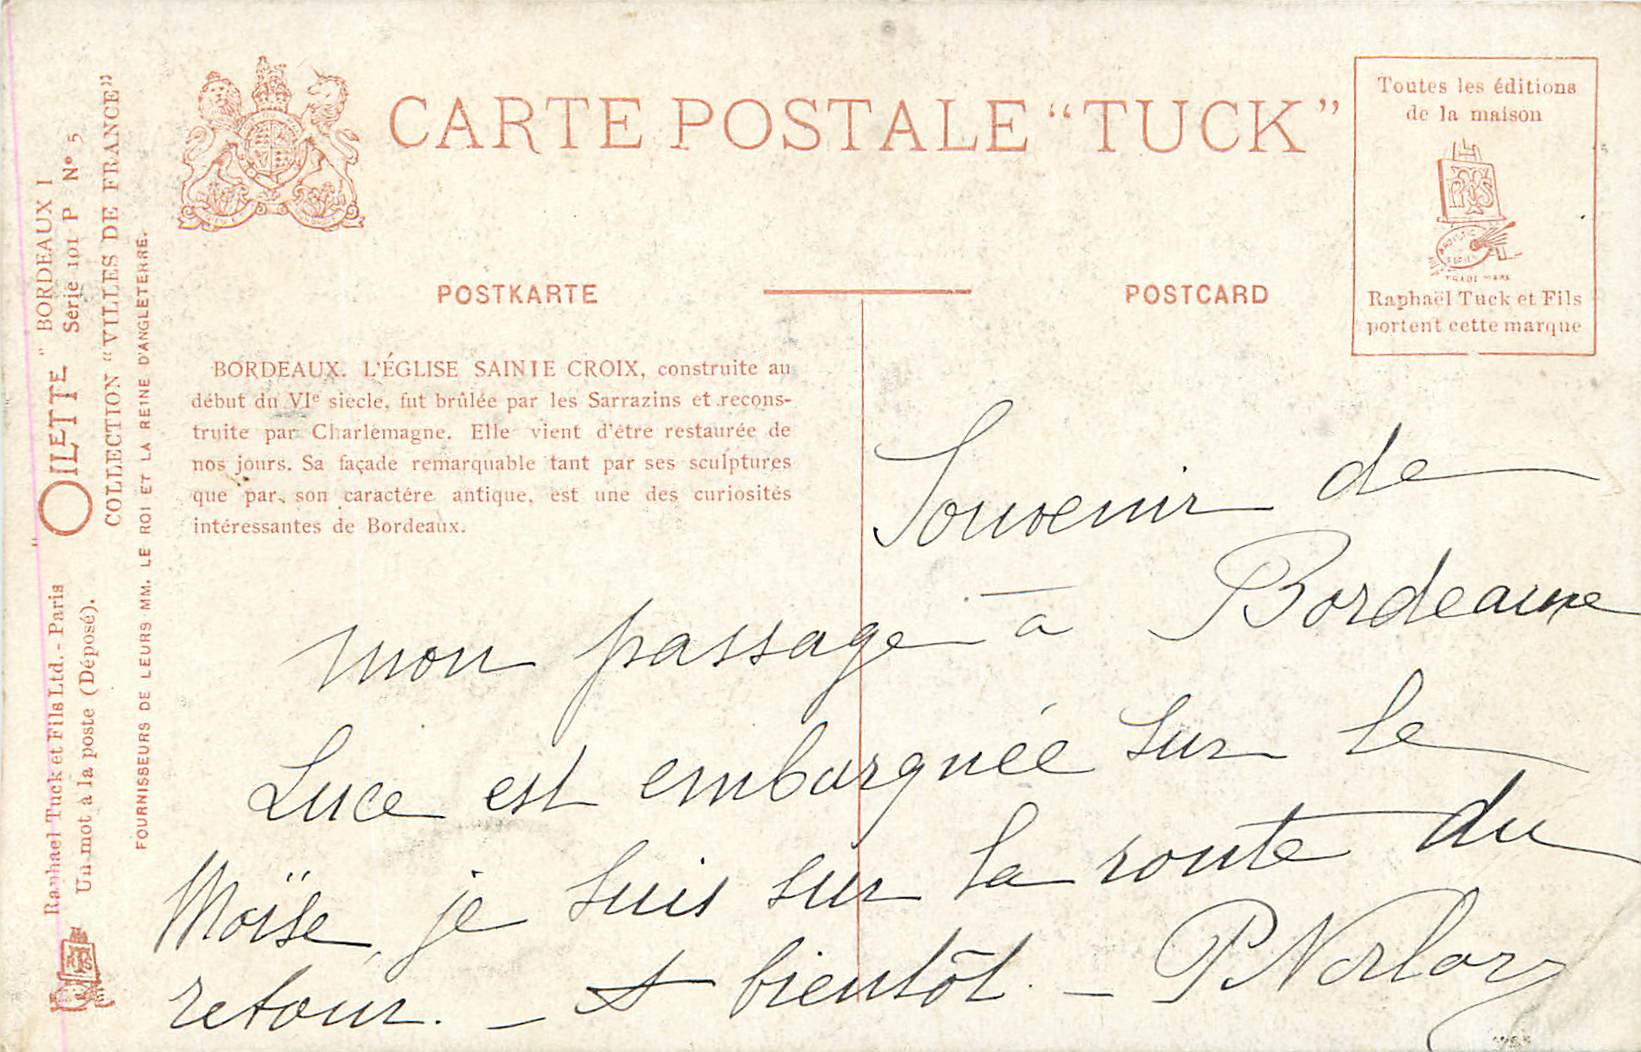 CARTE POSTALE “TUCK”
Toutes les éditions
de la maison
RTS
ARTISTIC
SERIES
TRADE MARK
Raphaël Tuck et Fils
portent cette marque
POSTKARTE
POSTCARD
BORDEAUX. L'ÉGLISE SAINTE CROIX, construite au
début du VIe siècle, fut brûlée par les Sarrazins et recons-
truite par Charlemagne. Elle vient d'être restaurée de
nos jours. Sa façade remarquable tant par ses sculptures
que par son caractére antique, est une des curiosités
intéressantes de Bordeaux.
"OILETTE" BORDEAUX I
Série 101 P Nº 5
COLLECTION “VILLES DE FRANCE”
FOURNISSEURS DE LEURS MM. LE ROI ET LA REINE D'ANGLETERRE.
Raphael Tuck et Fils Ltd. - Paris
Un mot à la poste (Déposé).
RTS
Souvenir de
mon passage à Bordeaux
Luce est embarquée sur le
Moïse, je suis sur la route du
retour. — A bientôt. —